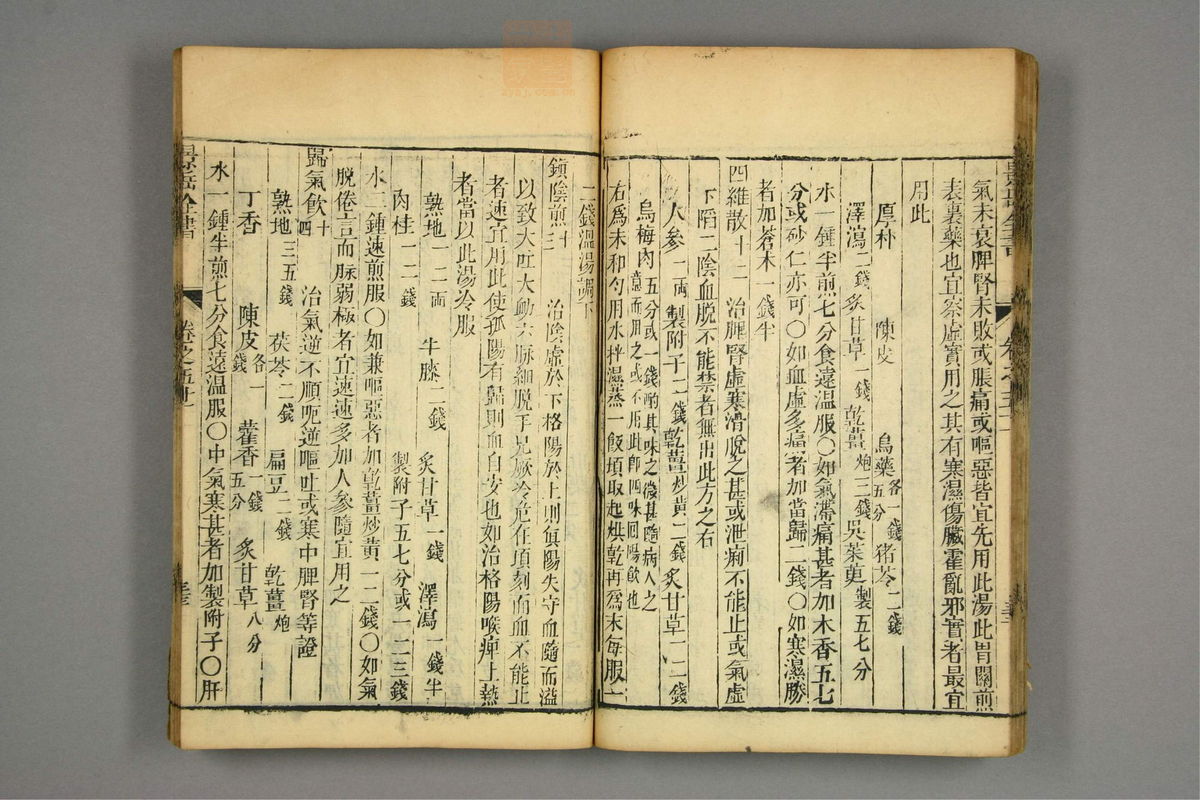 氣未衰脾腎未敗或脹痛或嘔惡皆宜先用此湯此胃關煎
表裏藥也宜察虛實用之其有寒濕傷臟霍亂邪實者最宜
用此
厚朴 陳皮 烏藥各一錢五分 猪苓二錢
澤瀉二錢 炙甘草一錢 乾薑炮二錢 吳茱萸製五七分
水一鍾半煎七分食遠温服〇如氣滯痛甚者加木香五七
分或砂仁亦可〇如血虛多痛者加當歸二錢〇如寒濕勝
者加蒼术一錢半
四維散十二 治脾腎虛寒滑脫之甚或泄痢不能止或氣虛
下陷二陰血脫不能禁者無出此方之右
人參一兩 製附子二錢 乾薑炒黄二錢 炙甘草一二錢
烏梅肉五分或一錢酌其味之微甚隨病人之
意而用之或不用此即四味回陽飲也
右爲末和勻用水拌濕蒸一飯頃取起烘乾再爲末每服一
二錢温湯調下
鎮陰煎十三 治陰虛於下格陽於上則眞陽失守血隨而溢
以致大吐大衂六脉細脫手足厥冷危在頃刻而血不能止
者速宜用此使孤陽有歸則血自安也如治格陽喉痺上熱
者當以此湯冷服
熟地一二兩 牛膝二錢 炙甘草一錢 澤瀉一錢半
肉桂一二錢 製附子五七分或一二三錢
水二鍾速煎服〇如兼嘔惡者加乾薑炒黄一二錢〇如氣
脫倦言而脉弱極者宜速速多加人參隨宜用之
歸氣飲十四 治氣逆不順呃逆嘔吐或寒中脾腎等證
熟地三五錢 茯苓二錢 扁豆二錢 乾薑炮
丁香 陳皮各一錢 藿香一錢五分 炙甘草八分
水一鍾半煎七分食遠温服〇中氣寒甚者加製附子〇肝